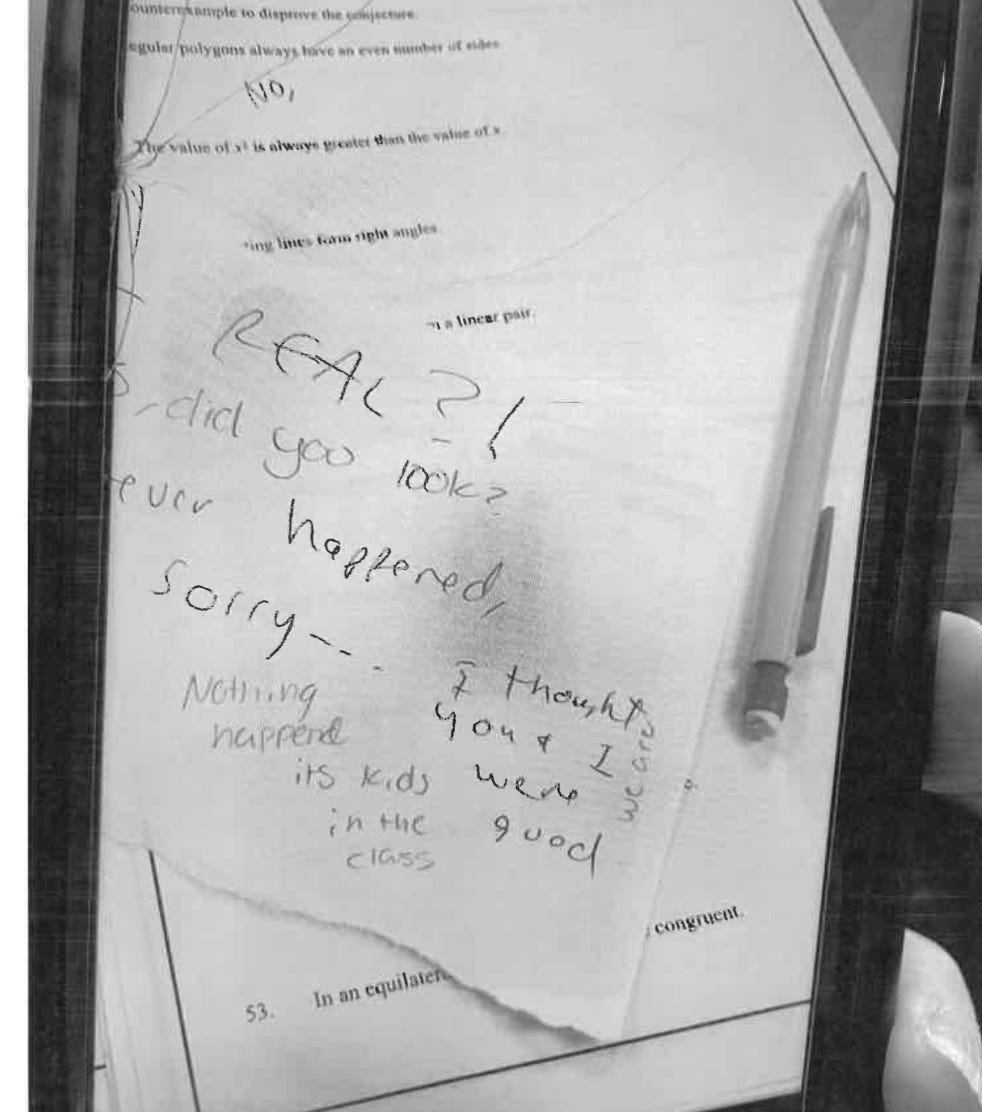 ounterexample to disprove the conjecture.
egular polygons always have an even number of sides.
NO,
The value of x² is always greater than the value of x.
ing lines form right angles.
a linear pair.
REAL?!
did you look?
ever happened,
Sorry---
Nothing
happend
its kids
in the
class
I thought
you & I
were
good
we are
congruent.
53. In an equilater